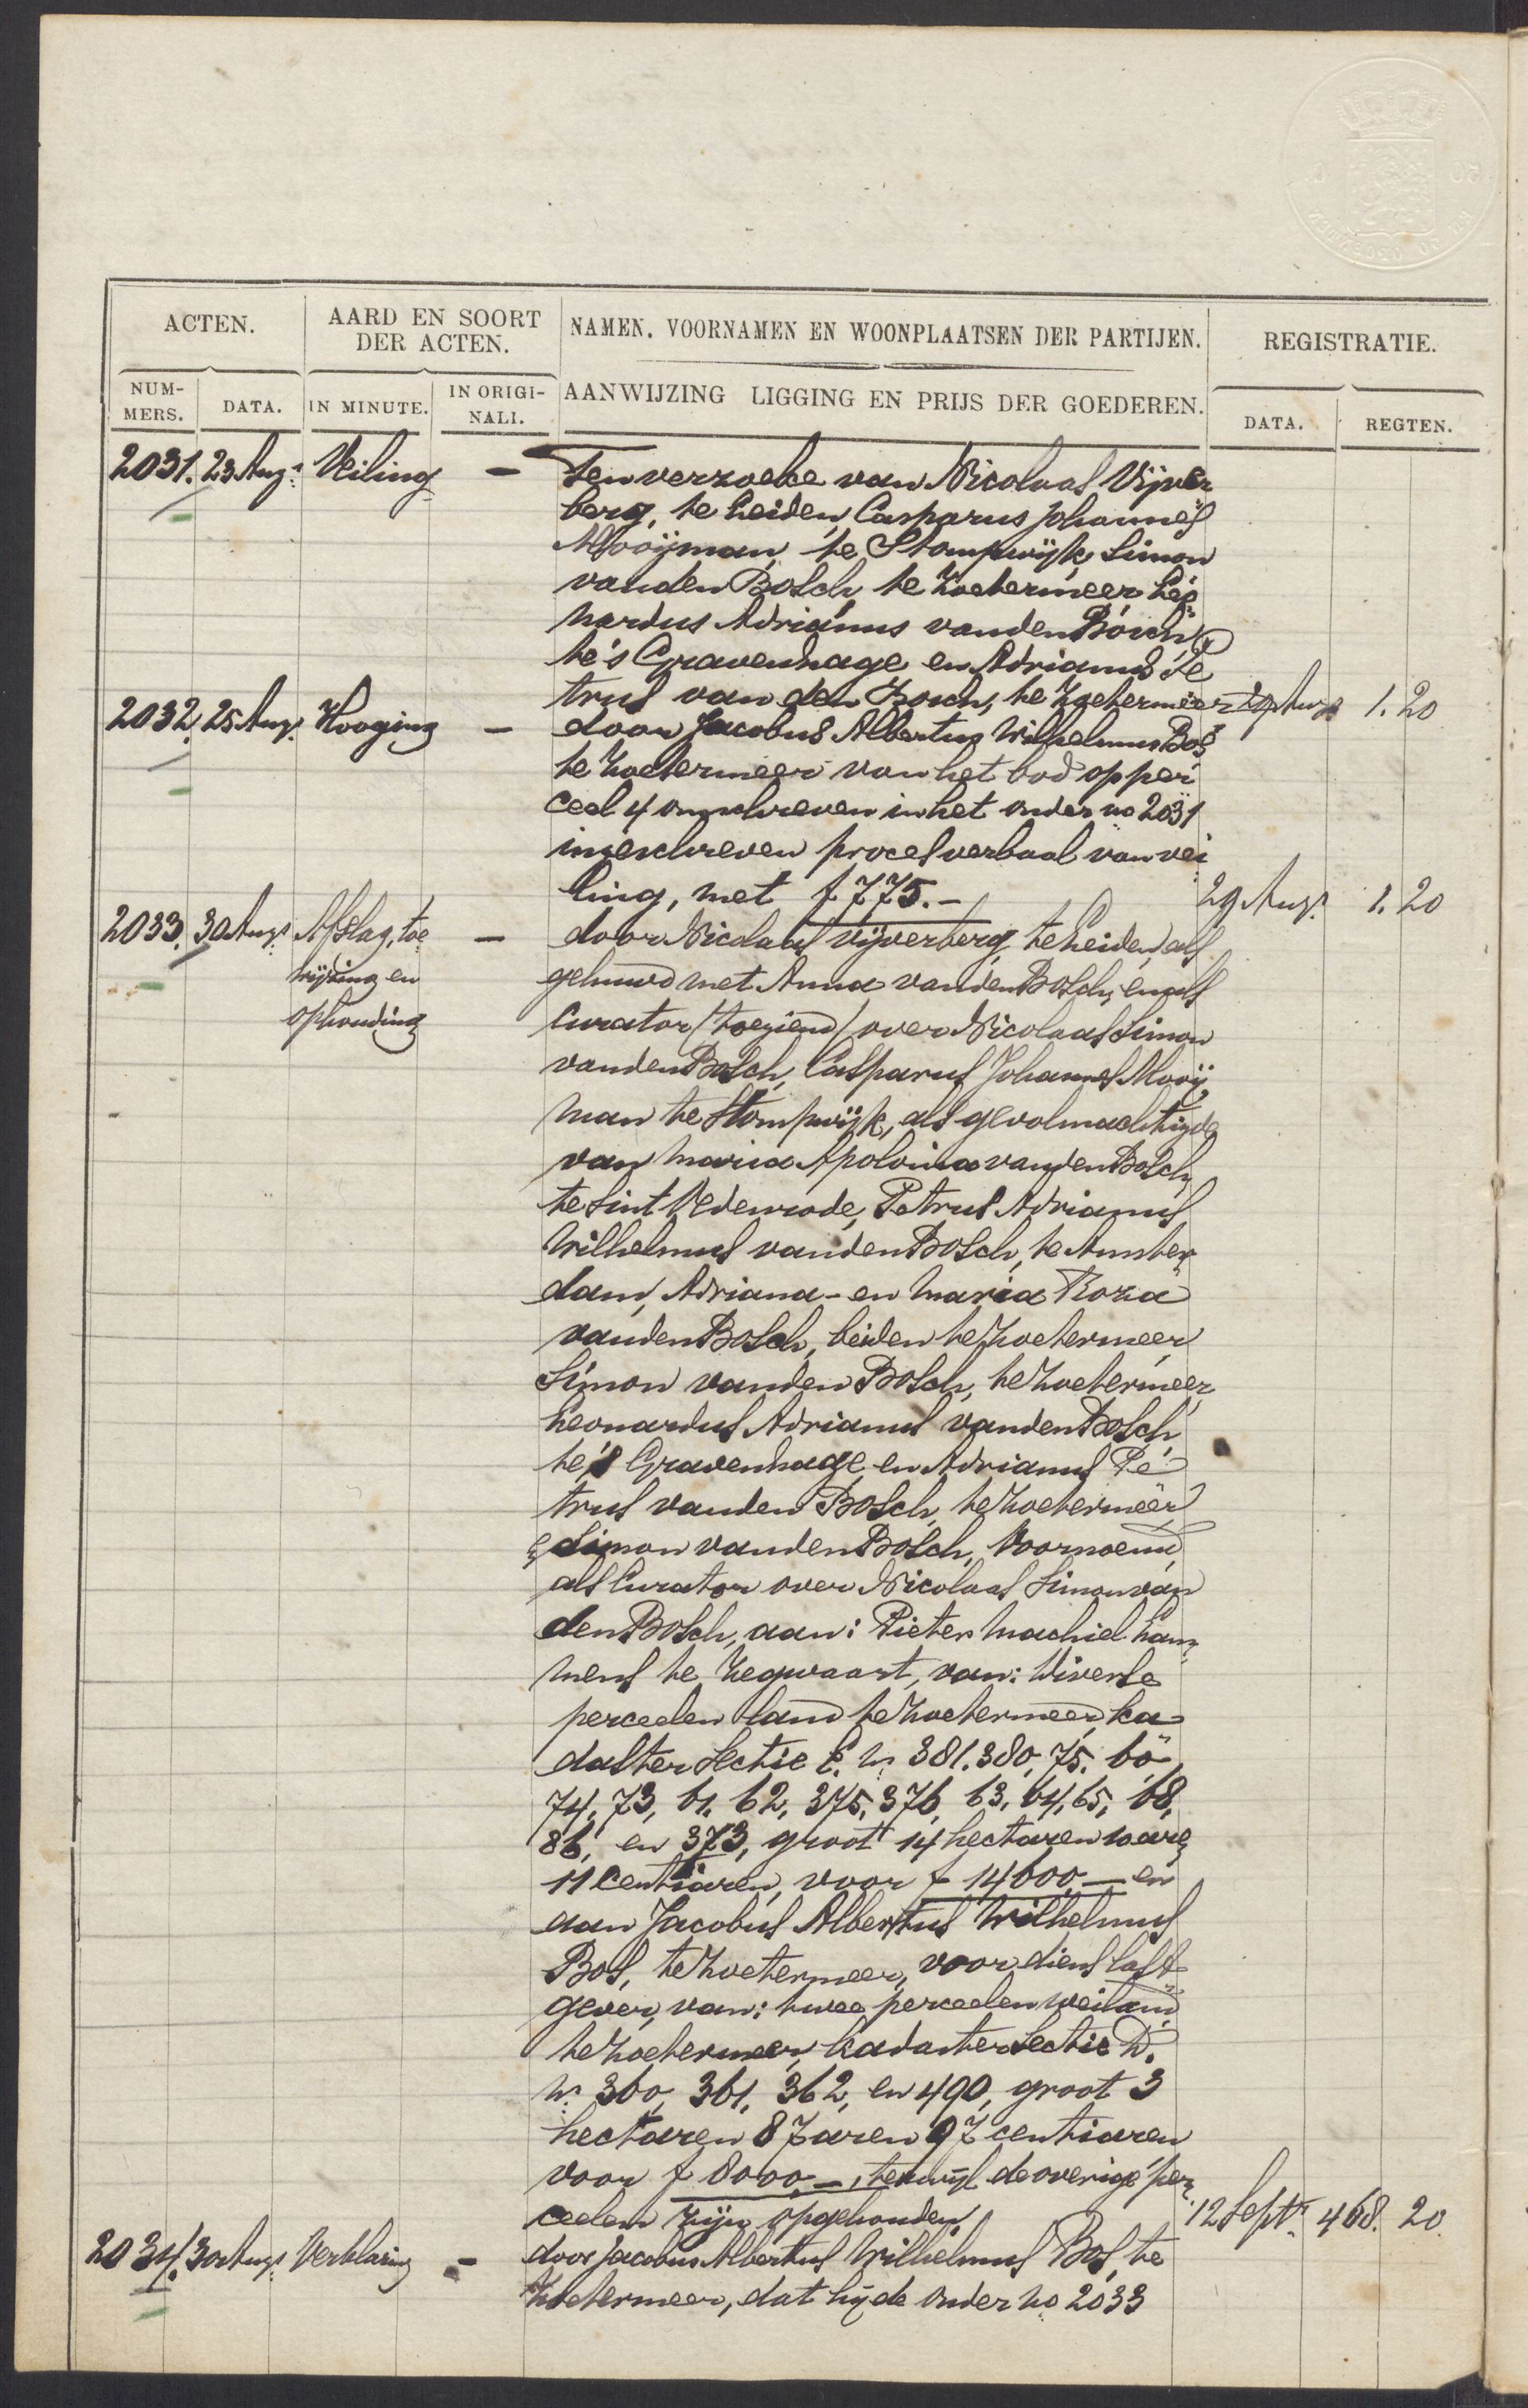 ACTEN. AARD EN SOORT DER ACTEN. NAMEN. VOORNAMEN EN WOONPLAATSEN DER PARTIJEN. REGISTRATIE.
NUM-MERS. DATA. IN MINUTE. IN ORIGI-NALI. AANWIJZING LIGGING EN PRIJS DER GOEDEREN. DATA. REGTEN.
2031. 23 Augs. Veiling — Ten verzoeke van Nicolaas Vijver
berg, te Leiden, Casparus Johannes
Mooijman, te Stompwijk, Simon
van den Bosch te Zoetermeer Leo
nardus Adrianus van den Bosch
te 's Gravenhage en Adrianus Pe
trus van den Bosch, te Zoetermeer 29 Augs 1.20
2032. 25 Augs. Hooging — door Jacobus Albertus Wilhelmus Bos
te Zoetermeer van het bod op per
ceel 4 omschreven in het onder no 2031
ingeschreven proces verbaal van vei
ling, met f 775.- 29 Augs. 1.20
2033. 30 Augs. Afslag, toe — door Nicolaas Vijverberg, te Leiden, als
wijzing en gehuwd met Anna van den Bosch, en als
ophouding Curator (toeziend) over Nicolaas Simon
van den Bosch, Casparus Johannes Mooij
man te Stompwijk, als gevolmachtigde
van Maria Apolonia van den Bosch,
te Sint Oedenrode, Petrus Adrianus
Wilhelmus van den Bosch, te Amster
dam, Adriana - en Maria Roza
van den Bosch, beiden te Zoetermeer
Simon van den Bosch, te Zoetermeer,
Leonardus Adrianus van den Bosch,
te 's Gravenhage en Adrianus Pe
trus van den Bosch, te Zoetermeer
Simon van den Bosch, voornoemd,
als Curator over Nicolaas Simon van
den Bosch, aan: Pieter Machiel Lam
mens te Zegwaart, van: diverse
perceelen land te Zoetermeer, ka
daster Sectie C. nrs 381. 380, 75, 60,
74, 73, 61, 62, 375, 376, 63, 64, 65, 68,
86, en 373, groot 14 hectaren 10 are,
11 centiaren, voor f 14600.— en
aan Jacobus Albertus Wilhelmus
Bos, te Zoetermeer, voor diens last
gever, van: twee perceelen weiland,
te Zoetermeer, kadaster Sectie D.
nrs 360, 361, 362, en 490, groot 3
hectaren 87 aren 97 centiaren
voor f 8000.—, terwijl de overige per
ceelen zijn opgehouden. 12 Septr. 468. 20
2034. 30 Augs. Verklaring — door Jacobus Albertus Wilhelmus Bos, te
Zoetermeer, dat hij de onder no 2033